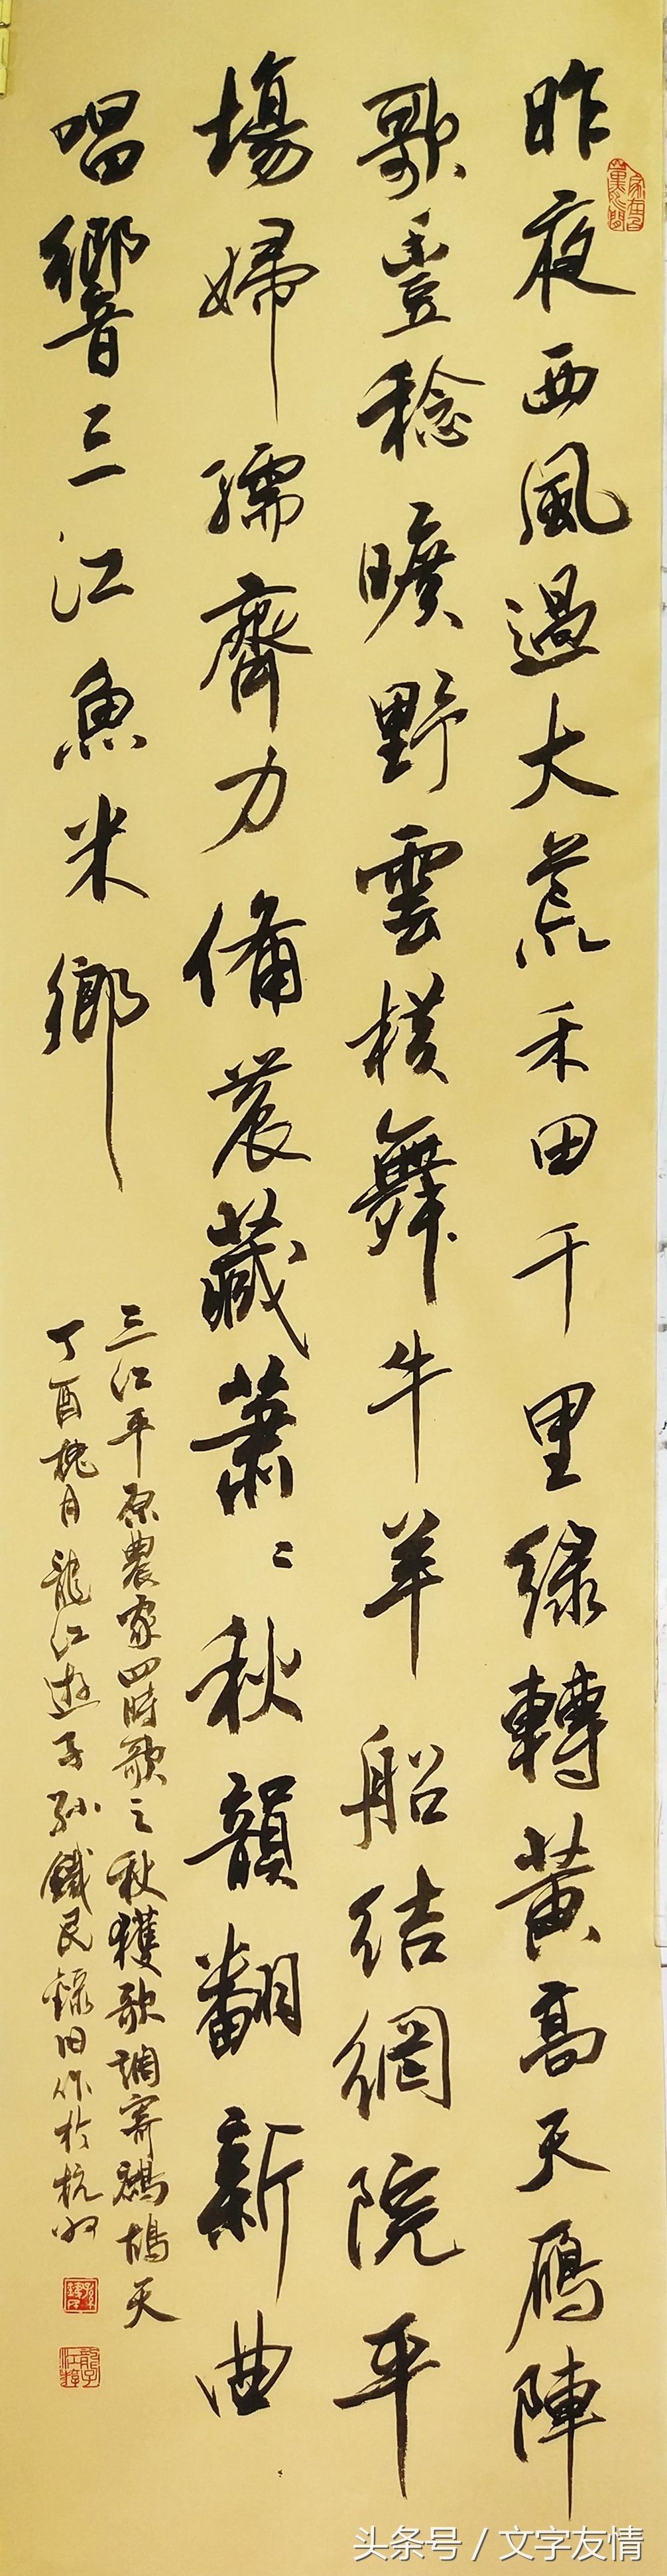 昨夜西風過大荒禾田千里绿轉黄高天雁陣
歌豐稔曠野雲横舞牛羊船结網院平
場婦孺齊力備農藏蕭〻秋韻翻新曲
唱響三江魚米鄉
三江平原農家四時歌之秋獲歌調寄鷓鴣天
丁酉槐月龍江遊子孫鐵民錄旧作於杭州
头条号 / 文字友情